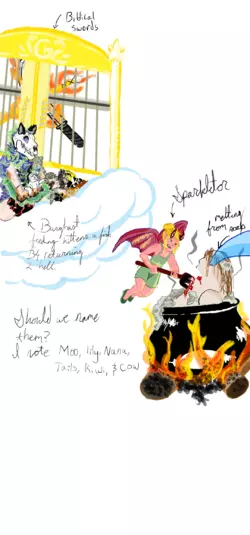 Biblical
swords
G
feeding kittens a fish
B4 returning
2 hell
Sparkletor
melting
from soap
Should we name
them?
I vote Moo, lily, Nana,
Tails, Kiwi, & Cow